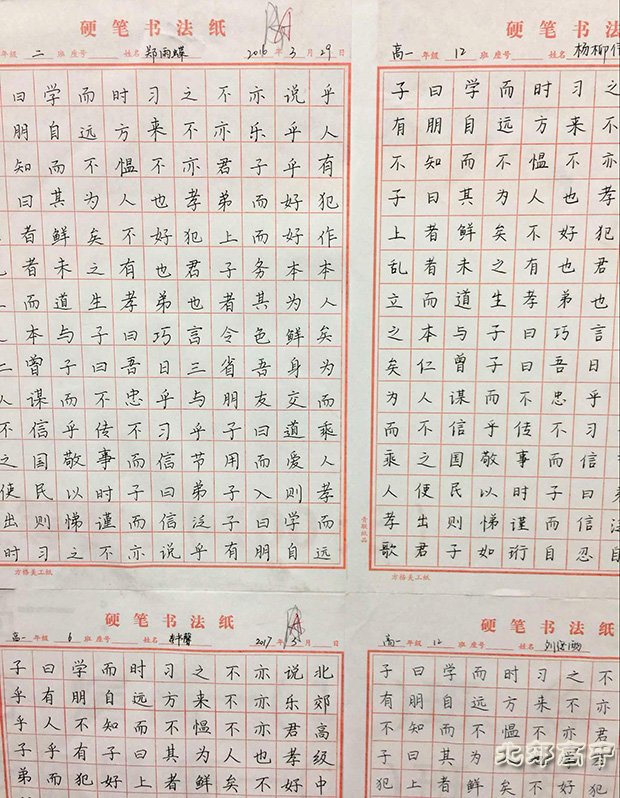 硬笔书法纸
年级 二 班 座号 姓名 郑雨蝶 2016 年 3 月 29 日
曰学而时习之不亦说乎
朋自远方来不亦乐乎人
知而不愠不亦君子乎有
曰其为人也孝弟而好犯
者鲜矣不好犯上而好作
者未之有也君子务本本
而道生孝弟也者其为人
本与子曰巧言令色鲜矣
曾子曰吾日三省吾身为
人谋而不忠乎与朋友交而
不信乎传不习乎子曰道乘
之国敬事而信节用而爱人
使民以时子曰弟子入则孝
出则悌谨而信泛子曰学而
时习之不亦说乎有朋自远
方格美工纸
硬笔书法纸
高一 年级 12 班 座号 姓名 杨柳
子曰学而时习之
有朋自远方来不
不知而不愠不亦
子曰其为人也孝
上者鲜矣不好犯
乱者未之有也君
立而道生孝弟也
之本与子曰巧言
矣仁曾子曰吾日
为人谋而不忠乎
而不信乎传不习
乘之国敬事而信
人使民以时子曰
孝出则悌谨而信泛
歌君子如珩自忍自
方格美工纸
硬笔书法纸
高一 年级 6 班 座号 姓名 2017 年 3 月 日
子曰学而时习之不亦说北
乎有朋自远方来不亦乐郊
乎人不知而不愠不亦君高
子乎有子曰其为人也孝级
弟而犯好上者鲜矣不好中
硬笔书法纸
高一 年级 12 班 座号 姓名
子曰学而时习之不
有朋自远方来不亦
不知而不愠不亦君
子曰其为人也孝
犯上者鲜矣不好犯
北郊高中